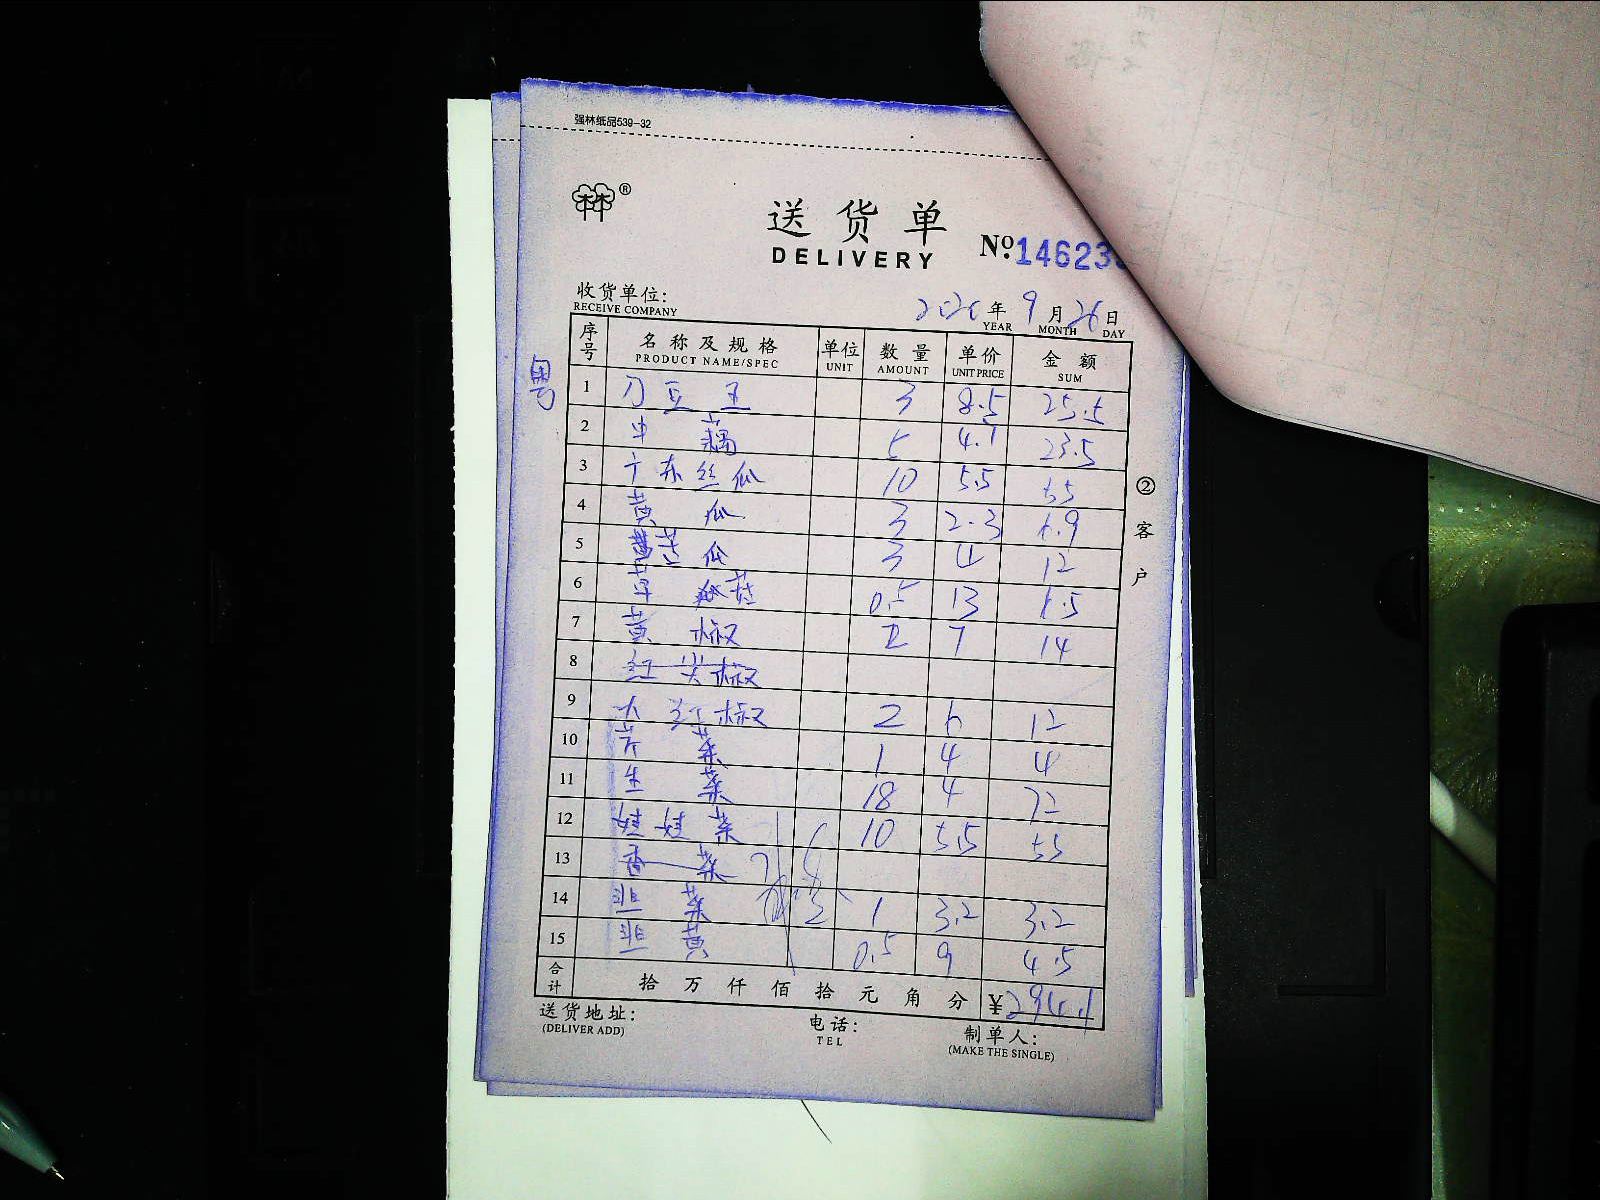 强林纸品539-32
林®
送货单
DELIVERY
№:14623
收货单位:
RECEIVE COMPANY
2020年9月26日
YEAR MONTH DAY
粤
序号 名称及规格 单位 数量 单价 金额
PRODUCT NAME/SPEC UNIT AMOUNT UNIT PRICE SUM
1 刀豆王 3 8.5 25.5
2 中藕 5 4.7 23.5
3 广东丝瓜 10 5.5 55
4 黄瓜 3 2.3 6.9
5 苦瓜 3 4 12
6 草菇 0.5 13 6.5
7 黄椒 2 7 14
8 红尖椒
9 大红椒 2 6 12
10 芹菜 1 4 4
11 生菜 18 4 72
12 娃娃菜 10 5.5 55
13 香菜
14 韭菜 1 3.2 3.2
15 韭黄 0.5 9 4.5
合计 拾万仟佰拾元角分 ¥294.1
送货地址: 电话: 制单人:
(DELIVER ADD) TEL (MAKE THE SINGLE)
②客户